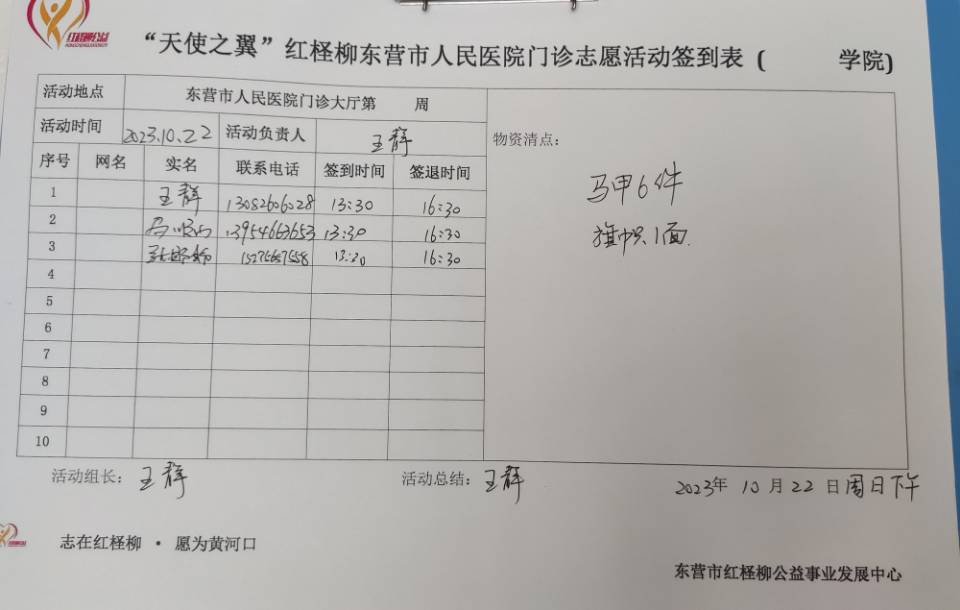 红柽柳公益
“天使之翼”红柽柳东营市人民医院门诊志愿活动签到表（ 学院)
活动地点 东营市人民医院门诊大厅第 周
活动时间 2023.10.22 活动负责人 王群
物资清点：
序号 网名 实名 联系电话 签到时间 签退时间
马甲6件
旗帜1面.
1 王群 13082606028 13:30 16:30
2 13954663653 13:30 16:30
3 13:30 16:30
4
5
6
7
8
9
10
活动组长：王群 活动总结：王群 2023年 10月22日周日下午
志在红柽柳 · 愿为黄河口
东营市红柽柳公益事业发展中心